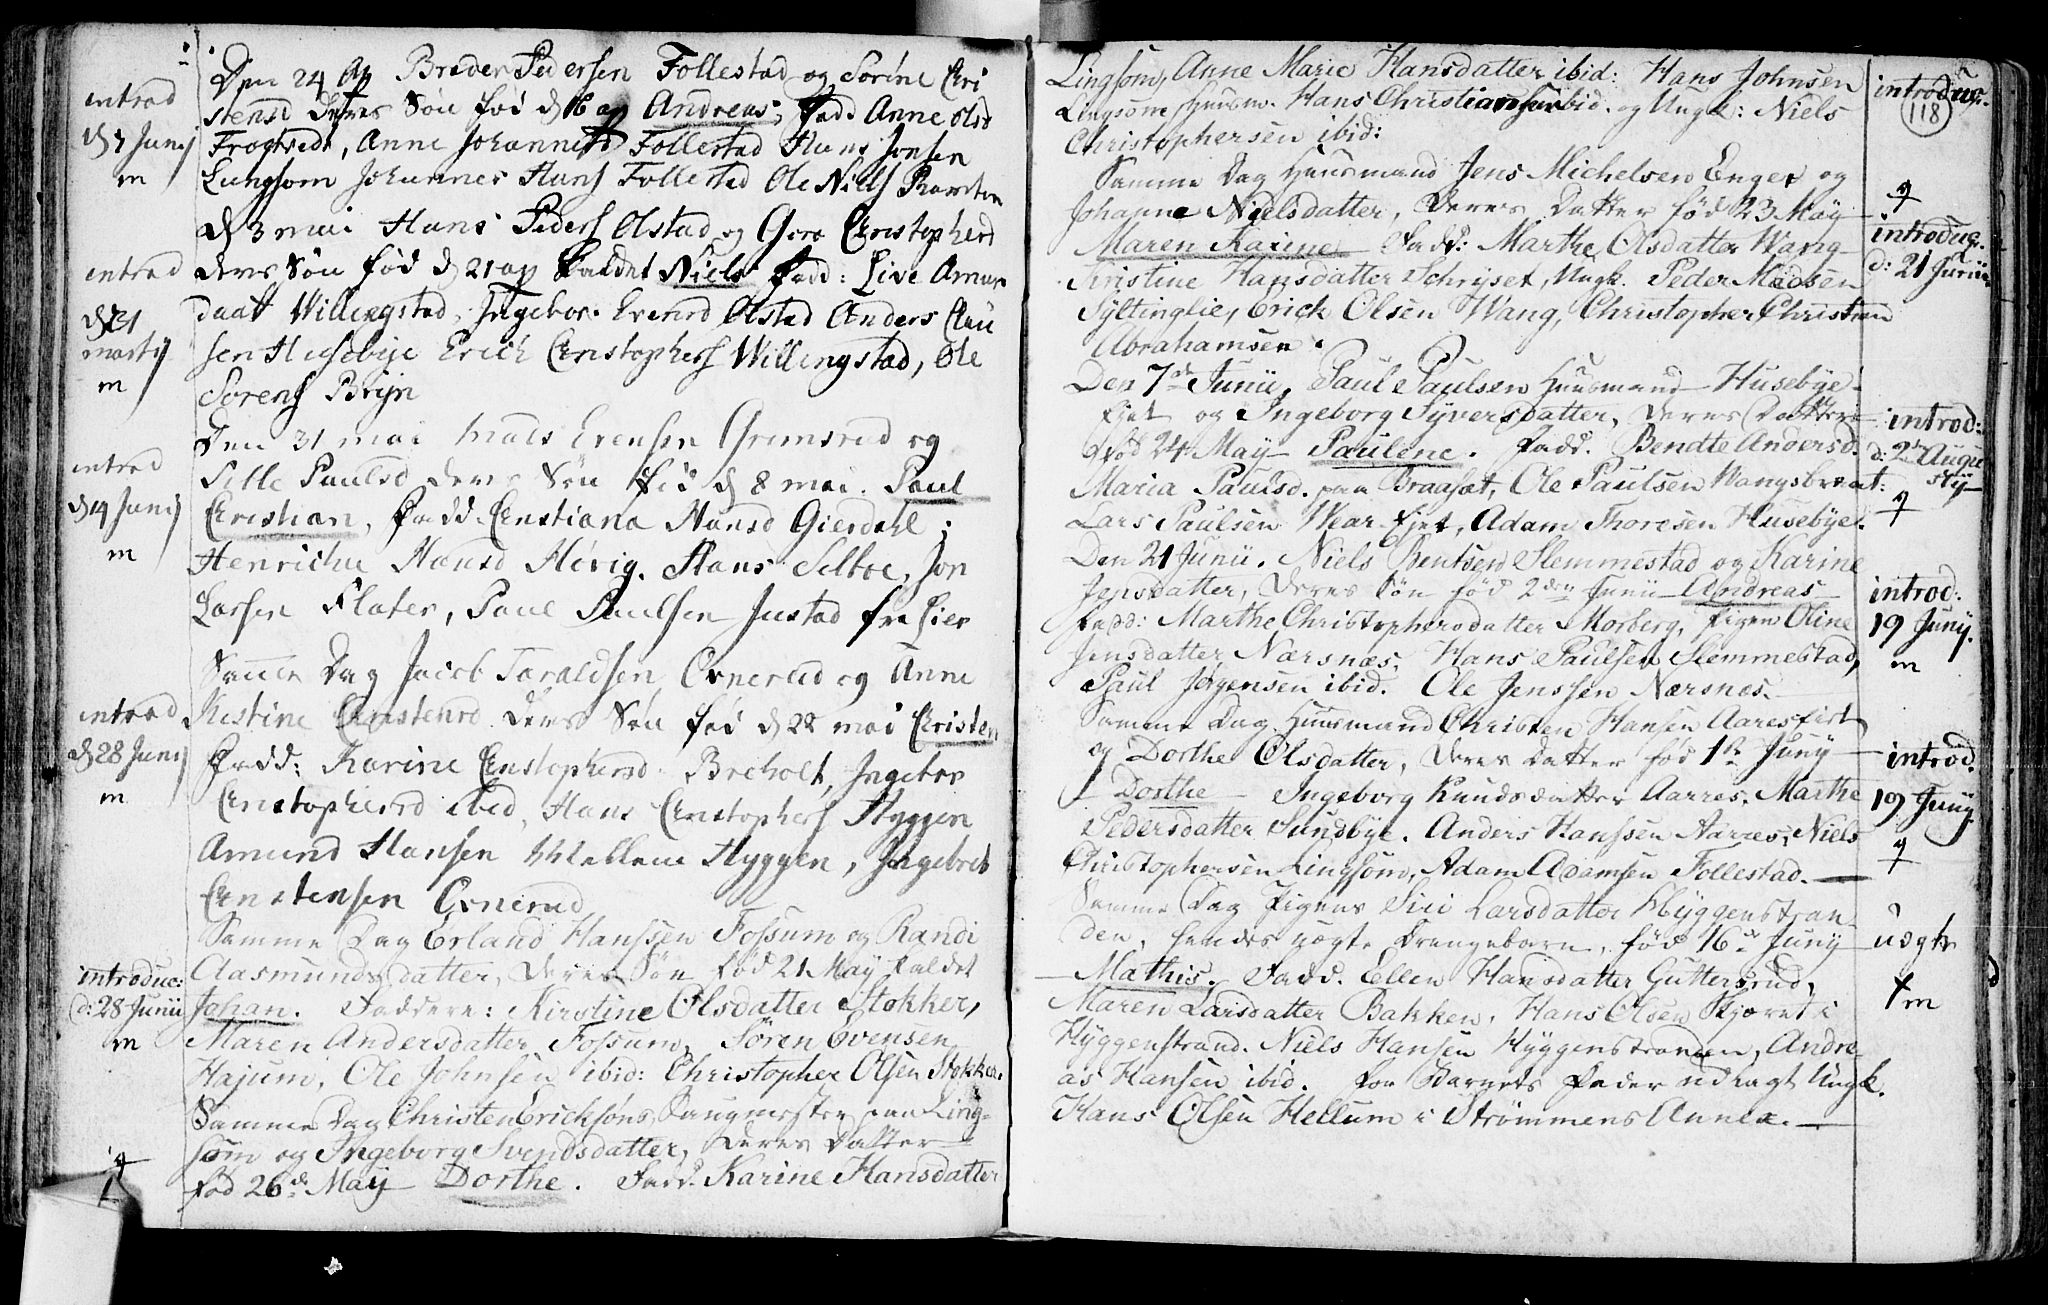 introd
d 7 Junij
m
Den 24 Ap Breder Pedersen Follestad og Sorine Cri
stensd deres Søn fød d 16 ap Andreas; Fadd Anne Olsd
Anne Johannesd Follestad Hans Jonsen
Lingsom Johannes Hans Follestad Ole Niels
d 3 mai Hans Peders Olstad og Goro Christophersd
introd
deres Søn fød d 21 ap kaldet Niels Fadd: Live Amun
d 31
daatt Willingstad, Ingebor Evensd Olstad Anders Clau
martij
m
sen Husebye Erich Christophers Willingstad, Ole
Sorens Brijn
Den 31 mai Mads Evensen Grimsrud og
introd
d 14 Junij
m
Sille Paulsd deres Søn fød d 8 mai. Paul
Cristian, Fadd. Cristiana Hansd Gierdahl;
Henriche Hansd Hørig. Hans Seltoe, Jon
Larsen Flaten, Paul Paulsen Justad fra Lier
Samme Dag Jacob Taraldsen Ovnerud og Anne
introd
d 28 Junij
m
Kistine Christensd deres Søn fød d 22 mai Cristen
Fadd: Karine Christophersd Breholt, Ingebor
Christophersd ibid, Hans Christophers Hyggen
Amund Hansen Mellem Hyggen, Ingebret
Christensen Ovnerud
Samme Dag Erland Hanssen Fossum og Randi
introduc:
d: 28 Junii
m
Aasmundsdatter, Deres Søn fød 21 May kaldet
Johan. Faddere: Kirstine Olsdatter Stokker,
Maren Andersdatter Fossum, Søren Evensen
Hajum, Ole Johnsen ibid: Christopher Olsen Stokker.
Samme Dag Christen Ericksøns, Saugmester paa Ling-
som og Ingeborg Svendsdatter, Deres Datter
fød 26de May Dorthe. Fadd. Karine Hansdatter
118
Lingsom, Anne Marie Hansdatter ibid: Hans Johnsen
introduc.
Lingsom Huusm. Hans Christiansen ibid. og Ungk: Niels
Christophersen ibid:
Samme Dag Huusmand Jens Michelsen Enger og
Johanne Nielsdatter, Deres Datter fød 23 May
introduc.
d: 21 Junii
Maren Karine Fadd: Marthe Olsdatter Wang
Kristine Hansdatter Schryset, Ungk. Peder Madsen
Syltinglie, Erick Olsen Wang, Christopher Christian
Abrahamsen.
Den 7de Junii, Paul Paulsen Huusmand Husebye-
introd:
d: 2de Augu
stij
Ejet og Ingeborg Syversdatter, Deres Datter
fød 24 May Pauline. Fadd. Bendte Andersd.
Maria Paulsd. paa Braaset, Ole Paulsen Wangsbraat:
Lars Paulsen Wear-Ejet, Adam Thoresen Husebye.
Den 21 Junii. Niels Bentsen Slemmestad og Karine
introd:
19 Junij.
m
Jensdatter, Deres Søn fød 2den Junii Andreas
Fadd: Marthe Christophersdatter Morberg, Pigen Oline
Jensdatter Nærsnæs, Hans Paulsen Slemmestad,
Paul Jørgensen ibid. Ole Jenssen Nærsnes.
Samme Dag Huusmand Christen Hansen Aaresejet
introd.
19 Junij
og Dorthe Olsdatter, Deres Datter fød 1ste Junij
Dorthe Ingeborg Knudsdatter Aarres, Marthe
Pedersdatter Sundbye. Anders Hanssen Aarres, Niels
Christophersen Lingsom, Adam Adamsen Follestad.
Samme Dag Pigens Siri Larsdatter Hyggenstran
uægte
m
den, hendes uægte Drengebarn, fød 16de Junij
Mathis. Fadd. Ellen Hansdatter Guttersrud,
Maren Larsdatter Bakken, Hans Olsen Kjæret i
Hyggenstrand. Niels Hansen Hyggenstranden, Andre-
as Hansen ibid. For Barnets Fader udlagt Ungk.
Hans Olsen Hellum i Strømmens Annex.